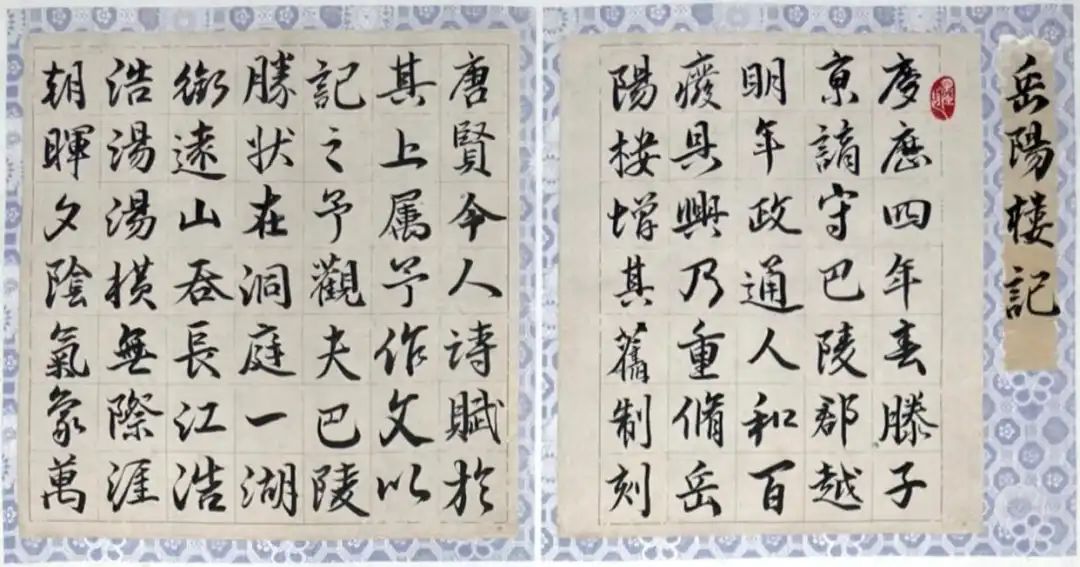 岳陽楼記
慶曆四年春滕子
京謫守巴陵郡越
明年政通人和百
廢具興乃重脩岳
陽楼增其舊制刻
唐賢今人詩賦於
其上属予作文以
記之予觀夫巴陵
勝狀在洞庭一湖
銜遠山吞長江浩
浩湯湯橫無際涯
朝暉夕陰氣象萬